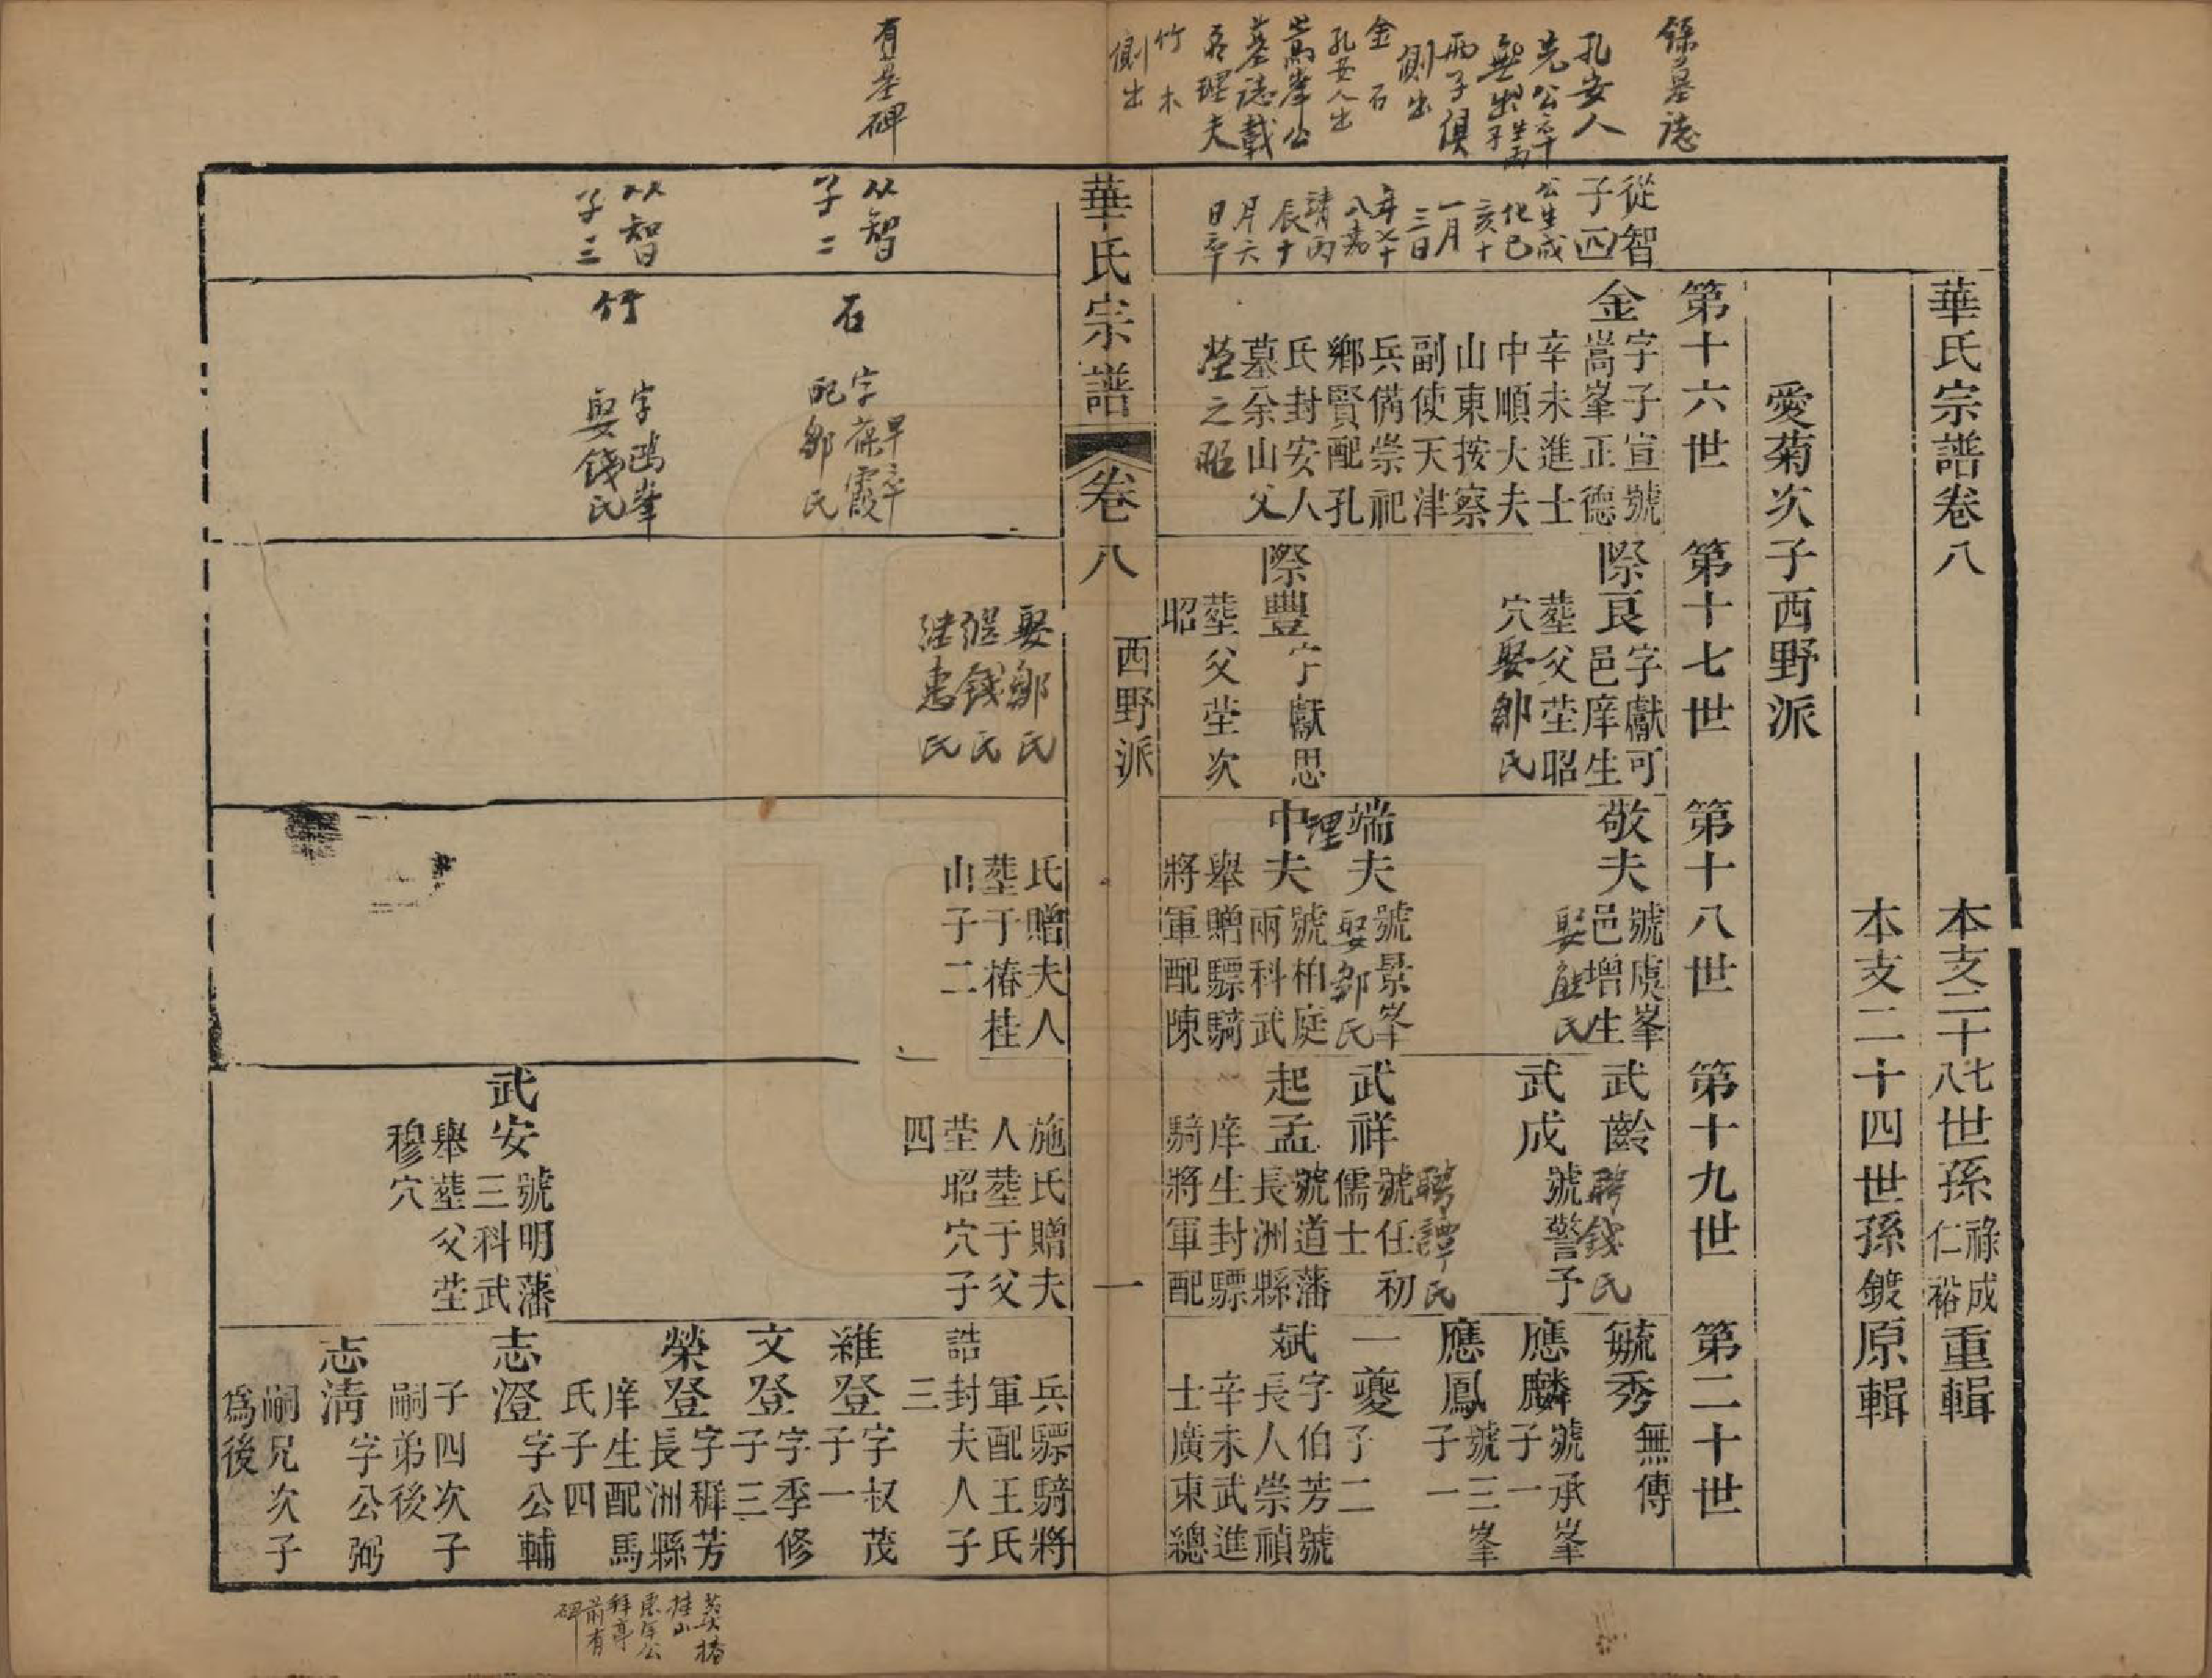 華氏宗譜卷八
本支二十七八世孫祿成仁裕重輯
本支二十四世孫鍍原輯
愛菊次子西野派
第十六世
第十七世
第十八世
第十九世
第二十世
錄墓誌
孔安人
先公六十
無出子
兩子俱
側出
金石
孔安人出
嵩峯公
墓誌載
有理夫
竹木
側出
有墓碑
從智
子四
公生成
化己
亥十
一月
三日
年七十
八嘉
靖丙
辰十
月六
日卒
金
字子宣號
嵩峯正德
辛未進士
中順大夫
山東按察
副使天津
兵備崇祀
鄉賢配孔
氏封安人
墓余山父
塋之昭
際良
字獻可
邑庠生
葬父塋昭
穴娶鄒氏
際豐
字獻思
葬父塋次
昭
敬夫
號虞峯
邑增生
娶熊氏
端夫
號景峯
娶鄒氏
理
中夫
號柏庭
兩科武
舉贈驃騎
將軍配陳
武齡
聘錢氏
武成
號警予
聘譚氏
武祥
號任初
儒士
起孟
號道藩
長洲縣
庠生封驃
騎將軍配
毓秀
無傳
應麟
號承峯
子一
應鳳
號三峯
子一
一夔
子二
斌
字伯芳號
長人崇禎
辛未武進
士廣東總
華氏宗譜
卷八
西野派
一
从智
子二
从智
子三
石
早卒
字葆霞
配鄒氏
竹
字鷗峯
娶錢氏
娶鄒氏
繼錢氏
繼惠氏
氏贈夫人
葬于椿桂
山子二
施氏贈夫
人葬于父
塋昭穴子
四
武安
號明藩
三科武
舉葬父塋
穆穴
兵驃騎將
軍配王氏
誥封夫人子
三
維登
字叔茂
子一
文登
字季修
子三
榮登
字穉芳
長洲縣
庠生配馬
氏子四
志澄
字公輔
子四次子
嗣弟後
志淸
字公弼
嗣兄次子
爲後
葬椿
桂山
東岸公
拜亭
前有
碑